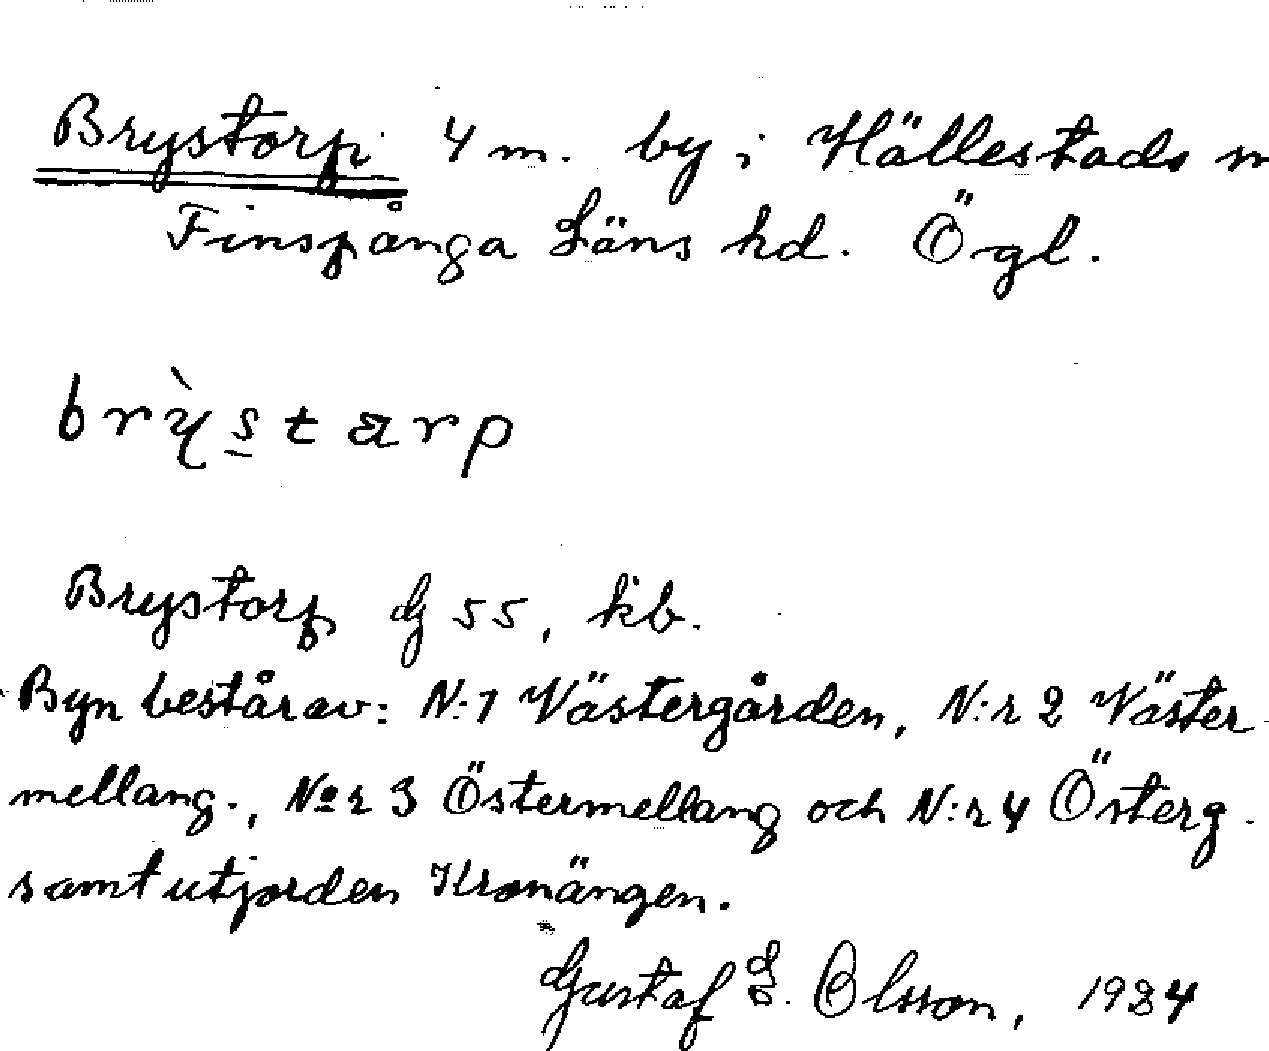 Brystorp 4 m. by i Hällestads
Finspånga Läns hd. Ögl.
brỳstarp
Brystorp G 55, kb.
Byn består av: N:1 Västergården, N:r 2 Väster-
mellang., No r 3 Östermellang och N:r 4 Österg.
samt utjorden Kronängen.
Gustaf Olsson, 1934